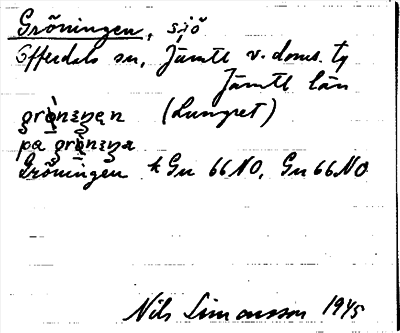 Gröningen, sjö
Offerdals sn, Jämtl v. doms. tg
Jämtl län
grö̀nıŋen (Lungret)
pa grö̀nıŋa
Gröningen k Gu 66 NO, Gu 66 NO
Nils Simonsson 1945